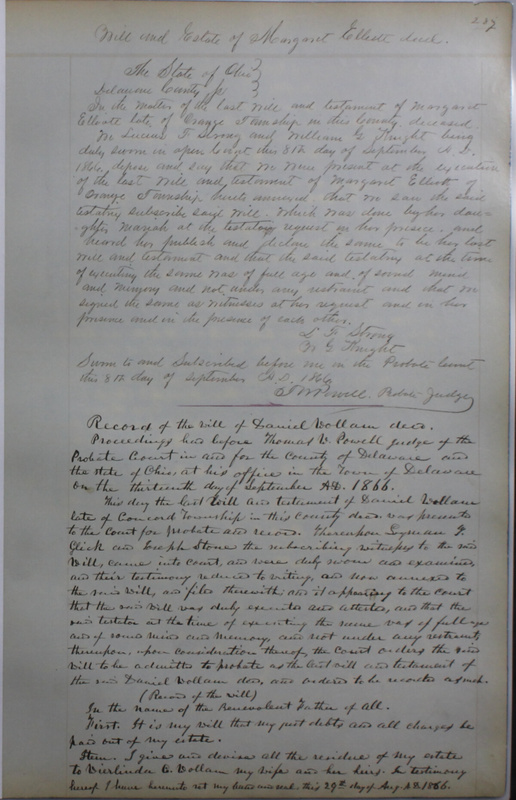 237
Will and Estate of Margaret Elliott decd.
The State of Ohio }
Delaware County ss }
In the matter of the last will and testament of Margaret
Elliott late of Orange Township in this County deceased.
We Lucius T. Strong and William G. Knight being
duly sworn in open Court this 8th day of September A.D.
1866, depose and say that we were present at the execution
of the last will and testament of Margaret Elliott of
Orange Township hereto annexed, that we saw the said
testatrix subscribe said will. Which was done by her dau-
ghter Mariah at the testatrix request in her presence, and
heard her publish and declare the same to be her last
will and testament and that the said testatrix at the time
of executing the same was of full age and, of sound mind
and memory and not under any restraint and that we
signed the same as witnesses at her request and in her
presence and in the presence of each other.
L. T. Strong
W. G. Knight
Sworn to and Subscribed before me in the Probate Court
this 8th day of September A.D. 1866
T. W. Powell. Probate Judge
Record of the will of Daniel Vollam decd.
Proceedings had before Thomas W. Powell judge of the
Probate Court in and for the County of Delaware and
the State of Ohio at his office in the Town of Delaware
on the thirteenth day of September AD. 1866.
This day the last will and testament of Daniel Vollam
late of Concord Township in this county decd. was presented
to the Court for probate and record. Thereupon Lyman F.
Glick and Joseph Stone the subscribing witnesses to the said
Will, came into court, and were duly sworn and examined,
and their testimony reduced to writing, and now annexed to
the said will, and filed therewith and it appearing to the court
that the said will was duly executed and attested, and that the
said testator at the time of executing the same was of full age
and of sound mind and memory, and not under any restraint;
thereupon, upon consideration thereof, the Court orders the said
will to be admitted to probate as the last will and testament of
the said Daniel Vollam decd, and ordered to be recorded as such.
(Record of the will)
In the name of the Benevolent Father of All.
First. It is my will that my just debts and all charges be
paid out of my estate.
Item. I give and devise all the residue of my estate
to Vollam my wife and her heirs. In testimony
hereof I have hereunto set my hand and seal this 29th day of Aug AD. 1866.